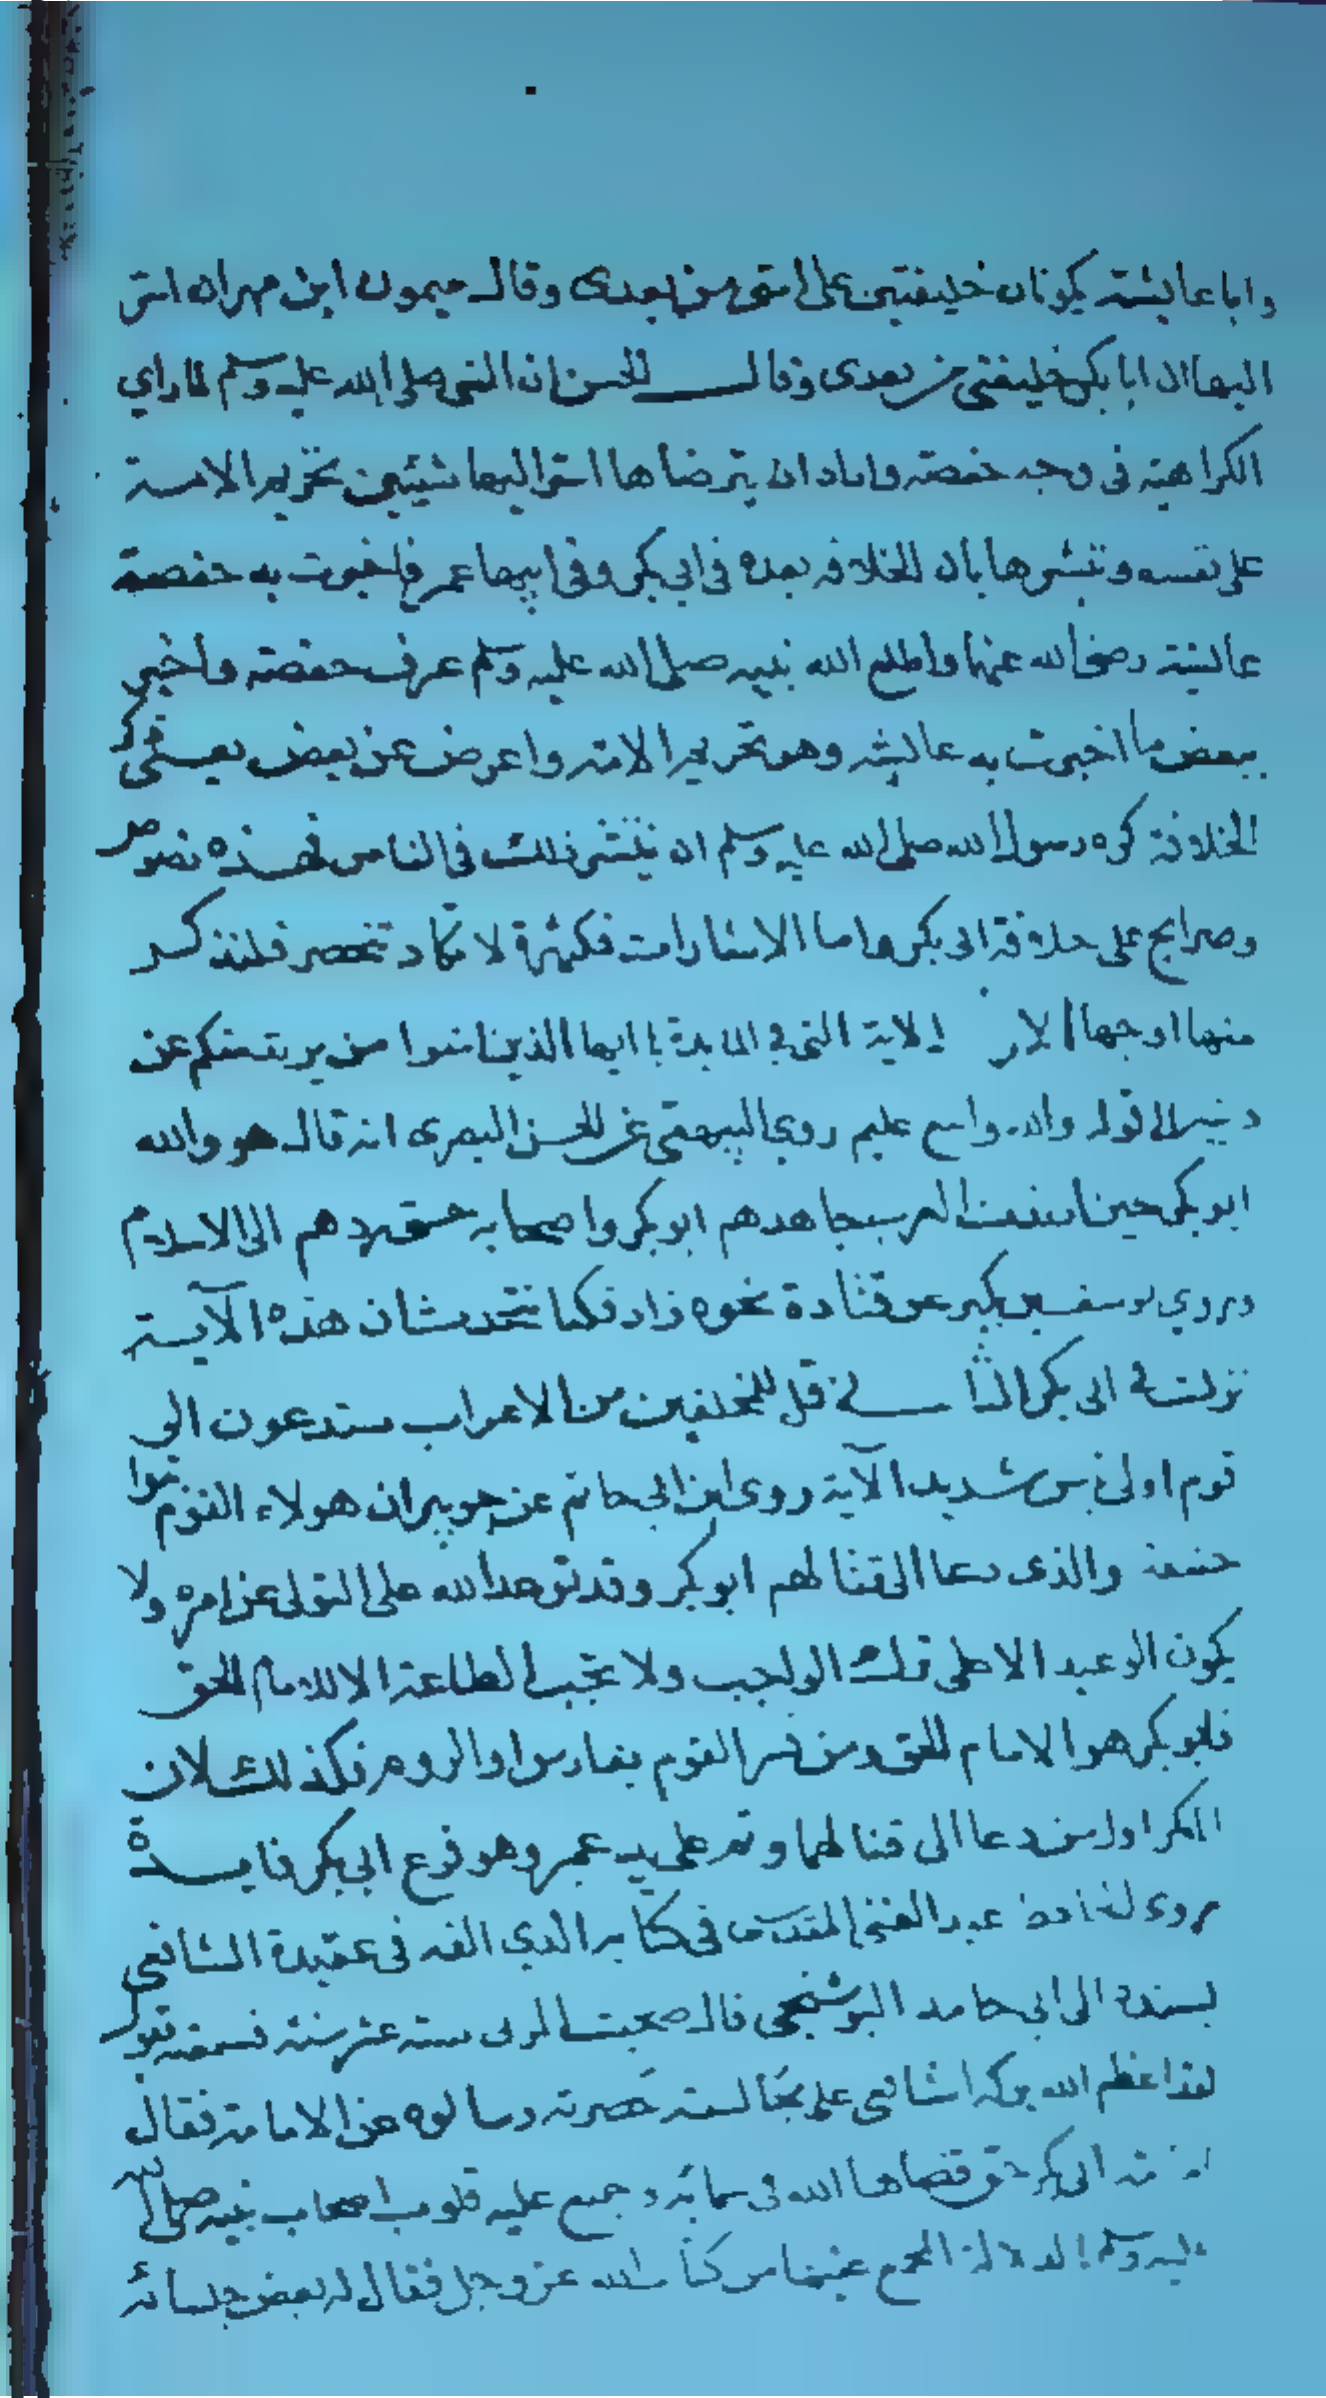 وابا عايشة يكونان خليفتين على امتى من بعدى وقال ميمون ابن مهران اسر
اليها ان ابا بكر خليفتى من بعدى وقال الحسن ان النبى صلى الله عليه وسلم لما راي
الكراهية فى وجه حفصة واراد ان يترضاها اسر اليها شيئين تحريم الامة
على نفسه وتبشرها بأن الخلافه بعده فى ابى بكر وفى ابيها عمر فاخبرت به حفصة
عايشة رضى الله عنهما واطلع الله نبيه صلى الله عليه وسلم عرف حفصة واخبر
ببعض ما اخبرت به عايشه وهو تحريم الامة واعرض عن بعض يعنى ذكر
الخلافة كره رسول الله صلى الله عليه وسلم ان ينتشر ذلك فى الناس فهذه نصوص
وصرايح على خلافة ابى بكر واما الاشارات فكثيرة لا تكاد تنحصر فلنذكر
منها اوجها الاول الاية التى فى المايدة يا ايها الذين امنوا من يرتد منكم عن
دينه الى قوله والله واسع عليم روى البيهقى عن الحسن البصرى انه قال هو والله
ابو بكر حين ارتدت العرب جاهدهم ابو بكر واصحابه حتى ردهم الى الاسلام
وروي يونس بن بكير عن قتادة نحوه وزاد فكنا نتحدث ان هذه الآية
نزلت فى ابى بكر الثانية قل للمخلفين من الاعراب ستدعون الى
قوم اولى بأس شديد الآية روى ابن ابى حاتم عن جويبر ان هولاء القوم بنوا
حنيفة والذى دعا الى قتالهم ابو بكر وقد توعد الله على التولى عن امره ولا
يكون الوعيد الا على ترك الواجب ولا تجب الطاعة الا للامام الحق
فابو بكر هو الامام الحق ومن فسر القوم بفارس والروم فكذلك لان
ابا بكر اول من دعا الى قتالهما وتم على يد عمر وهو فرع ابى بكر فايدة
روى الحافظ عبد الغنى المقدسى فى كتابه الذي الفه فى عقيدة الشافعى
بسنده الى ابى حامد البوشنجى قال صحبت المزنى ستة عشر سنة فسمعته يقول
لقد اعظم الله بركة الشافعى على مجالسته حضرته وسالوه عن الامامة فقال
امامة ابى بكر حق قضاها الله فى سمائه وجمع عليه قلوب اصحاب نبيه صلى الله
عليه وسلم الدلالة المجمع عليها من كتاب الله عز وجل فقال له بعض جلسائه